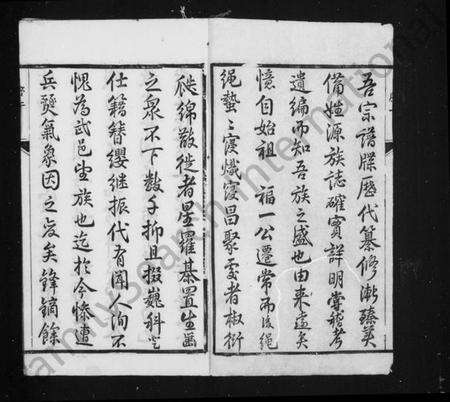 吾宗譜牒歷代纂修漸臻美
備姓源族誌確實詳明嘗稽考
遺編而知吾族之盛也由來遠矣
憶自始祖 福一公遷常而後繩
繩蟄蟄寖熾寖昌聚處者椒衍
瓞綿散徙者星羅碁置生齒
之衆不下數千抑且掇巍科登
仕籍簪纓继振代有聞人洵不
愧為武邑望族也迄於今慘遭
兵燹氣象因之變矣鋒鏑餘
familysearch international